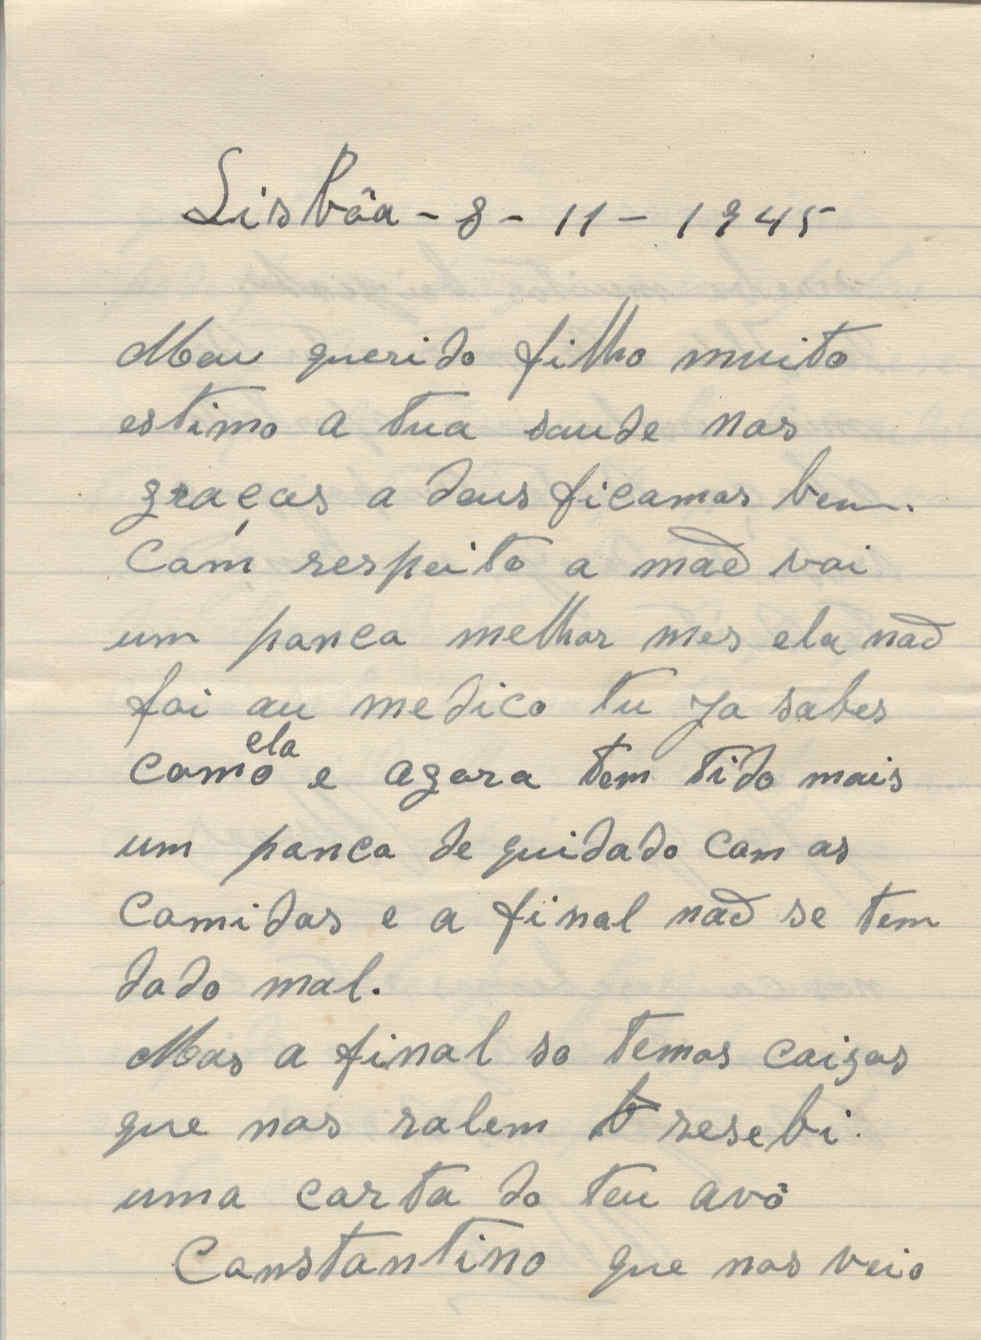 Lisbôa - 8 - 11 - 1945
Meu querido filho muito
estimo a tua saude nos
graças a deus ficamos bem.
Com respeito a mãe vai
um pouco melhor mes ela não
foi au medico tu ja sabes
como ela e agora tem tido mais
um pouco de quidado com as
comidas e a final não se tem
dado mal.
Mas a final so temos coisas
que nos ralem resebi
uma carta do teu avô
Constantino que nos veio